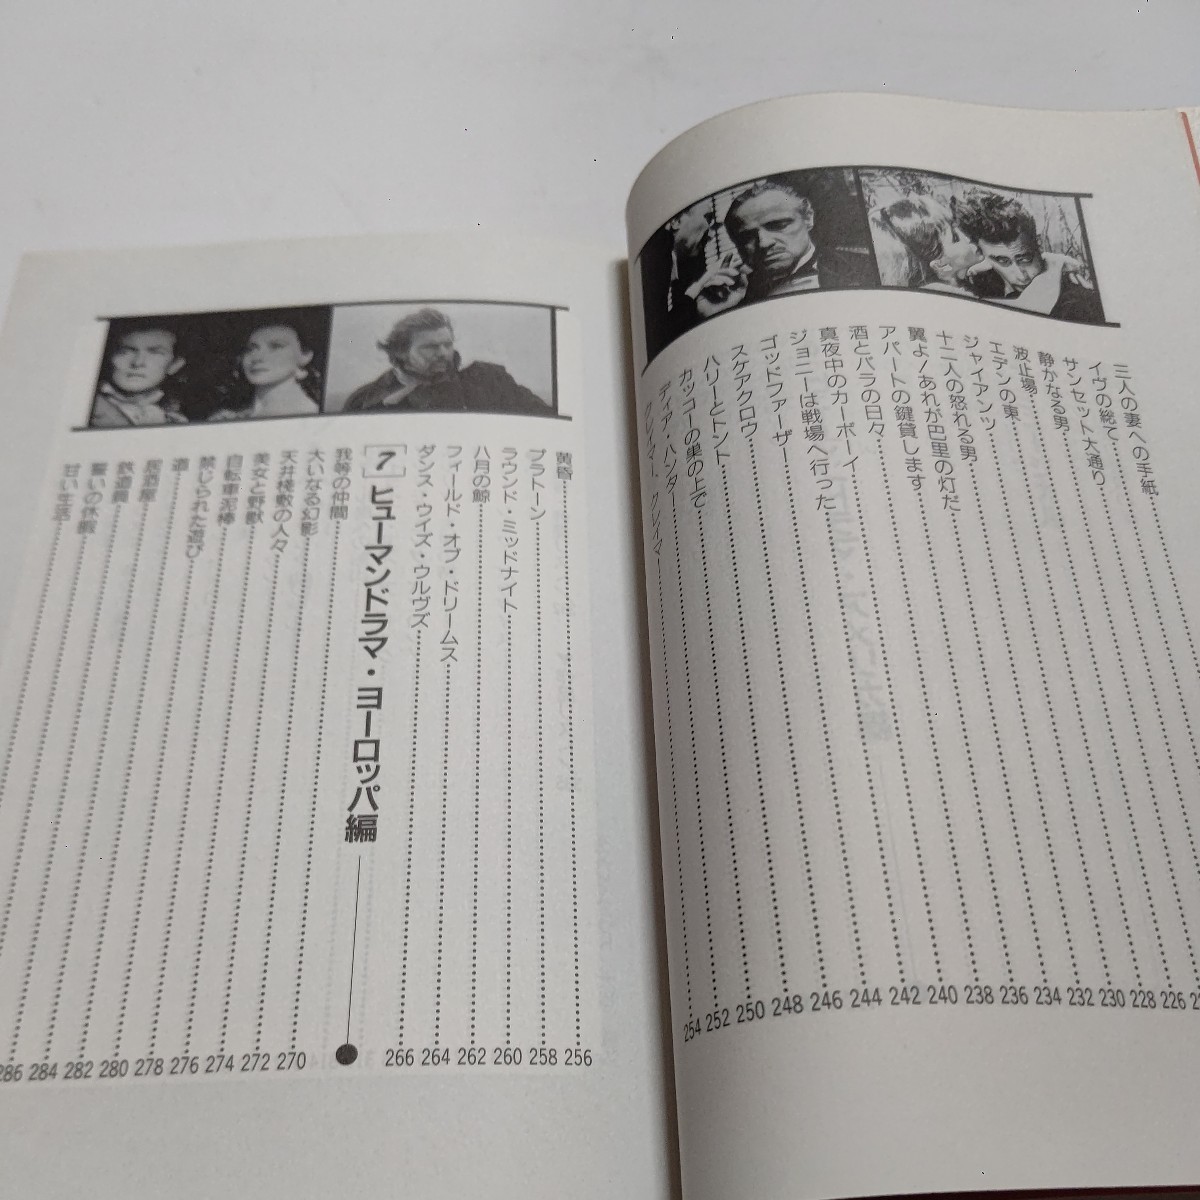 三人の妻への手紙
イヴの総て
サンセット大通り
静かなる男
波止場 226
エデンの東 228
ジャイアンツ 230
十二人の怒れる男 232
翼よ!あれが巴里の灯だ 234
アパートの鍵貸します 236
酒とバラの日々 238
真夜中のカーボーイ 240
ジョニーは戦場へ行った 242
ゴッドファーザー 244
スケアクロウ 246
ハリーとトント 248
カッコーの巣の上で 250
ディア・ハンター 252
クレイマー、クレイマー 254
黄昏 256
プラトーン 258
ラウンド・ミッドナイト 260
八月の鯨 262
フィールド・オブ・ドリームス 264
ダンス・ウイズ・ウルヴズ 266
[7] ヒューマンドラマ・ヨーロッパ編
我等の仲間 270
大いなる幻影 272
天井桟敷の人々 274
美女と野獣 276
自転車泥棒 278
禁じられた遊び 280
道 282
居酒屋 284
鉄道員 286
誓いの休暇
甘い生活